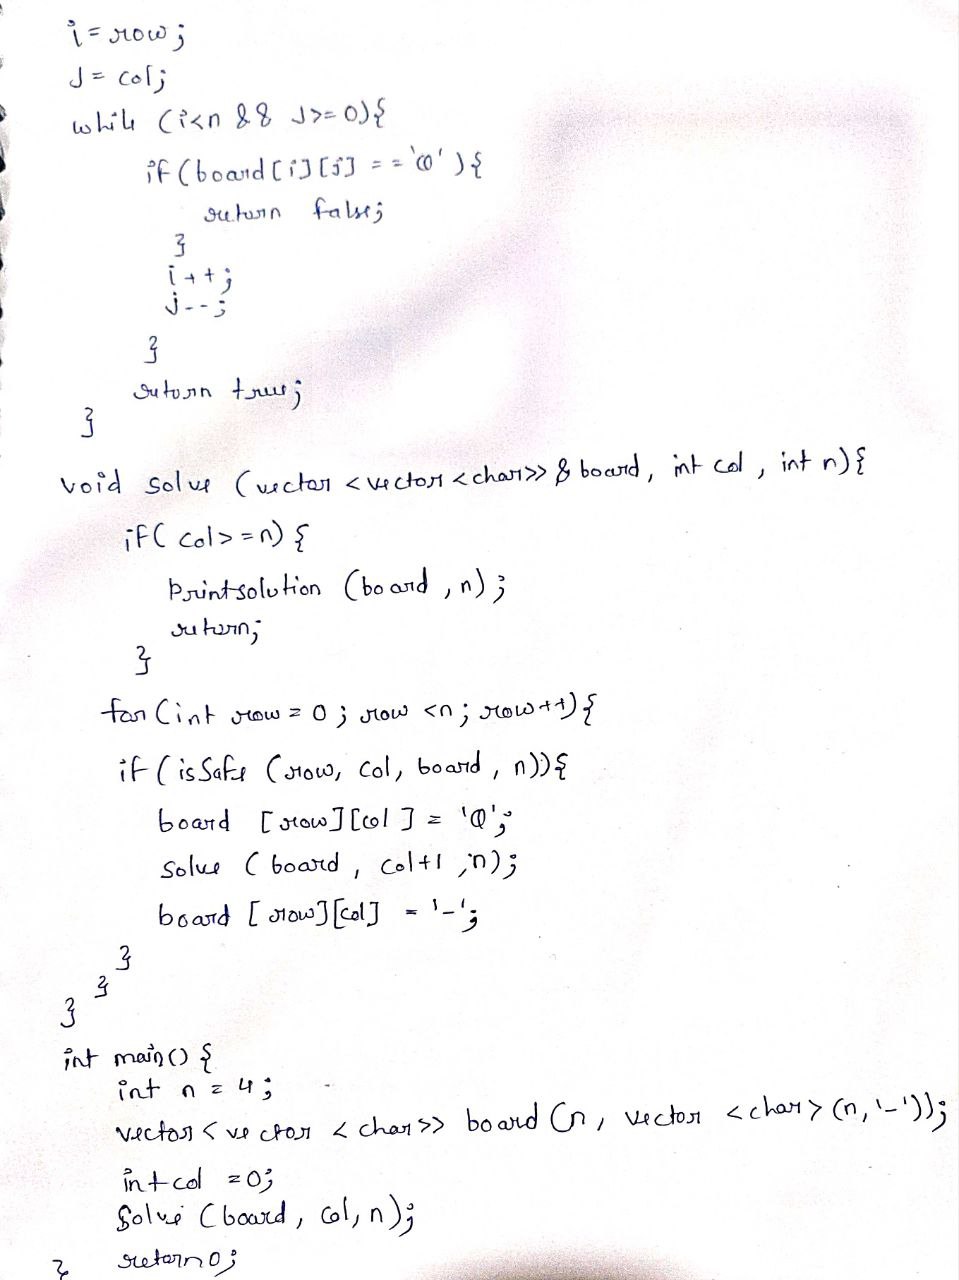 i = row;
J = col;
while (i<n && J>=0){
if (board[i][j] == 'Q'){
return false;
}
i++;
j--;
}
return true;
}
void solve (vector <vector <char>> & board, int col, int n){
if( col>=n) {
Printsolution (board, n);
return;
}
for (int row = 0; row <n; row++){
if (isSafe (row, col, board, n)){
board [row][col] = 'Q';
solve (board, col+1, n);
board [row][col] = '-';
}
}
}
int main() {
int n = 4;
vector<vector <char>> board (n, vector <char> (n,'-'));
int col = 0;
Solve (board, col, n);
return 0;
}